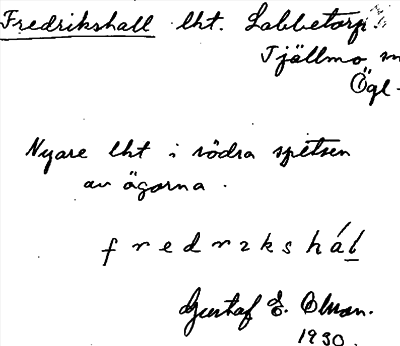 Fredrikshall lht. Labbetorp
Tjällmo
Ögl.
Nyare lht i södra spetsen
av ägorna.
fredrikshál
Gustaf E. Olson.
1930.